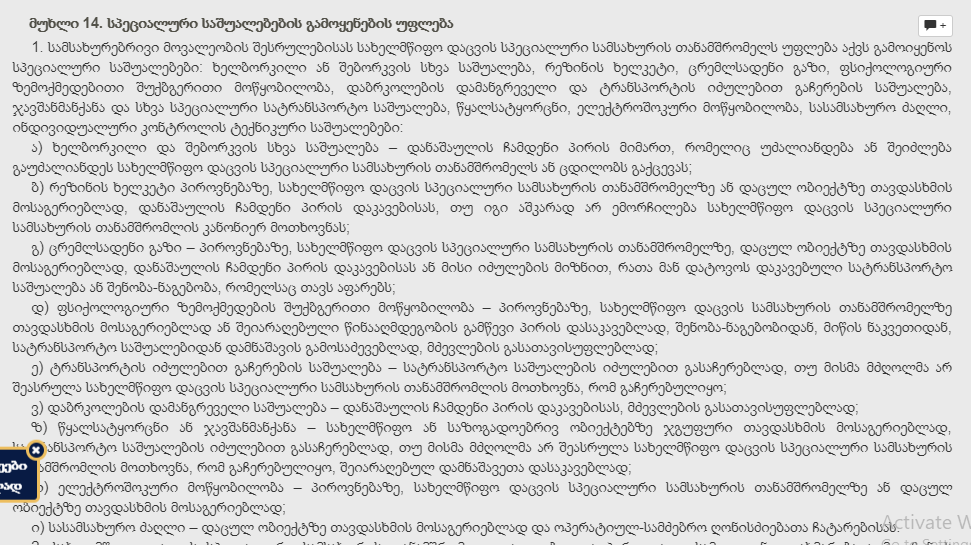 მუხლი 14. სპეციალური საშუალებების გამოყენების უფლება
+
1. სამსახურებრივი მოვალეობის შესრულებისას სახელმწიფო დაცვის სპეციალური სამსახურის თანამშრომელს უფლება აქვს გამოიყენოს
სპეციალური საშუალებები: ხელბორკილი ან შებორკვის სხვა საშუალება, რეზინის ხელკეტი, ცრემლსადენი გაზი, ფსიქოლოგიური
ზემოქმედებითი შუქბგერითი მოწყობილობა, დაბრკოლების დამანგრეველი და ტრანსპორტის იძულებით გაჩერების საშუალება,
ჯავშანმანქანა და სხვა სპეციალური სატრანსპორტო საშუალება, წყალსატყორცნი, ელექტროშოკური მოწყობილობა, სასამსახურო ძაღლი,
ინდივიდუალური კონტროლის ტექნიკური საშუალებები:
ა) ხელბორკილი და შებორკვის სხვა საშუალება – დანაშაულის ჩამდენი პირის მიმართ, რომელიც უძალიანდება ან შეიძლება
გაუძალიანდეს სახელმწიფო დაცვის სპეციალური სამსახურის თანამშრომელს ან ცდილობს გაქცევას;
ბ) რეზინის ხელკეტი პიროვნებაზე, სახელმწიფო დაცვის სპეციალური სამსახურის თანამშრომელზე ან დაცულ ობიექტზე თავდასხმის
მოსაგერიებლად, დანაშაულის ჩამდენი პირის დაკავებისას, თუ იგი აშკარად არ ემორჩილება სახელმწიფო დაცვის სპეციალური
სამსახურის თანამშრომლის კანონიერ მოთხოვნას;
გ) ცრემლსადენი გაზი – პიროვნებაზე, სახელმწიფო დაცვის სპეციალური სამსახურის თანამშრომელზე, დაცულ ობიექტზე თავდასხმის
მოსაგერიებლად, დანაშაულის ჩამდენი პირის დაკავებისას ან მისი იძულების მიზნით, რათა მან დატოვოს დაკავებული სატრანსპორტო
საშუალება ან შენობა-ნაგებობა, რომელსაც თავს აფარებს;
დ) ფსიქოლოგიური ზემოქმედების შუქბგერითი მოწყობილობა – პიროვნებაზე, სახელმწიფო დაცვის სამსახურის თანამშრომელზე
თავდასხმის მოსაგერიებლად ან შეიარაღებული წინააღმდეგობის გამწევი პირის დასაკავებლად, შენობა-ნაგებობიდან, მიწის ნაკვეთიდან,
სატრანსპორტო საშუალებიდან დამნაშავის გამოსაძევებლად, მძევლების გასათავისუფლებლად;
ე) ტრანსპორტის იძულებით გაჩერების საშუალება – სატრანსპორტო საშუალების იძულებით გასაჩერებლად, თუ მისმა მძღოლმა არ
შეასრულა სახელმწიფო დაცვის სპეციალური სამსახურის თანამშრომლის მოთხოვნა, რომ გაჩერებულიყო;
ვ) დაბრკოლების დამანგრეველი საშუალება – დანაშაულის ჩამდენი პირის დაკავებისას, მძევლების გასათავისუფლებლად;
ზ) წყალსატყორცნი ან ჯავშანმანქანა – სახელმწიფო ან საზოგადოებრივ ობიექტებზე ჯგუფური თავდასხმის მოსაგერიებლად,
საშუალების იძულებით გასაჩერებლად, თუ მისმა მძღოლმა არ შეასრულა სახელმწიფო დაცვის სპეციალური სამსახურის
მოთხოვნა, რომ გაჩერებულიყო, შეიარაღებულ დამნაშავეთა დასაკავებლად;
ელექტროშოკური მოწყობილობა – პიროვნებაზე, სახელმწიფო დაცვის სპეციალური სამსახურის თანამშრომელზე ან დაცულ
ობიექტზე თავდასხმის მოსაგერიებლად;
ი) სასამსახურო ძაღლი – დაცულ ობიექტზე თავდასხმის მოსაგერიებლად და ოპერატიულ-სამძებრო ღონისძიებათა ჩატარებისას.
Activate